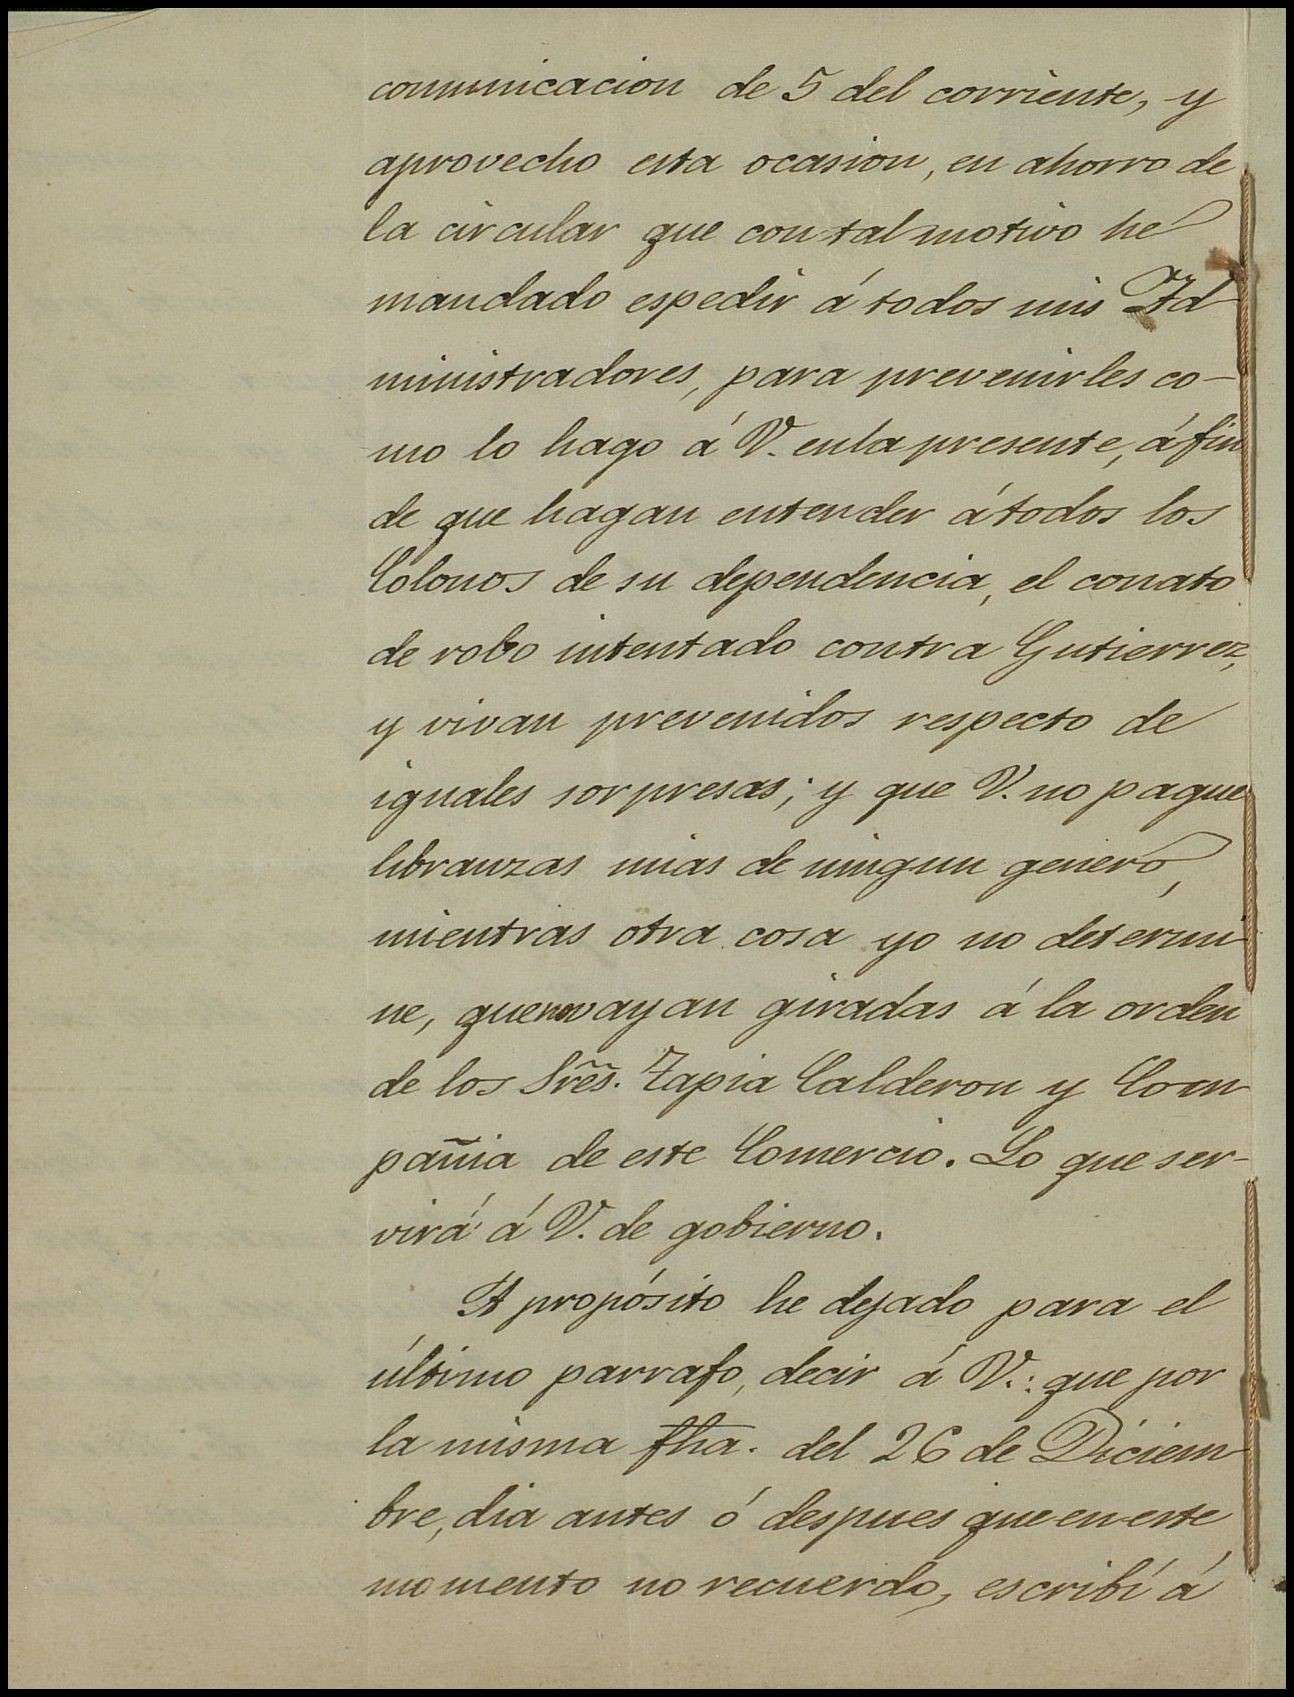 comunicacion de 5 del corriente, y
aprovecho esta ocasion, en ahorro de
la circular que con tal motivo he
mandado espedir á todos mis Ad
ministradores, para prevenirles co-
mo lo hago á V. en la presente, á fin
de que hagan entender á todos los
Colonos de su dependencia, el conato
de robo intentado contra Gutierrez,
y vivan prevenidos respecto de
iguales sorpresas; y que V. no pague
libranzas mias de ningun genero,
mientras otra cosa yo no determi
ne, que no vayan giradas á la orden
de los Sres. Tapia Calderon y Com
pañia de este Comercio. Lo que ser-
virá á V. de gobierno.
A propósito he dejado para el
último parrafo, decir á V.: que por
la misma fha. del 26 de Diciem
bre, dia antes ó despues que en este
momento no recuerdo, escribí á